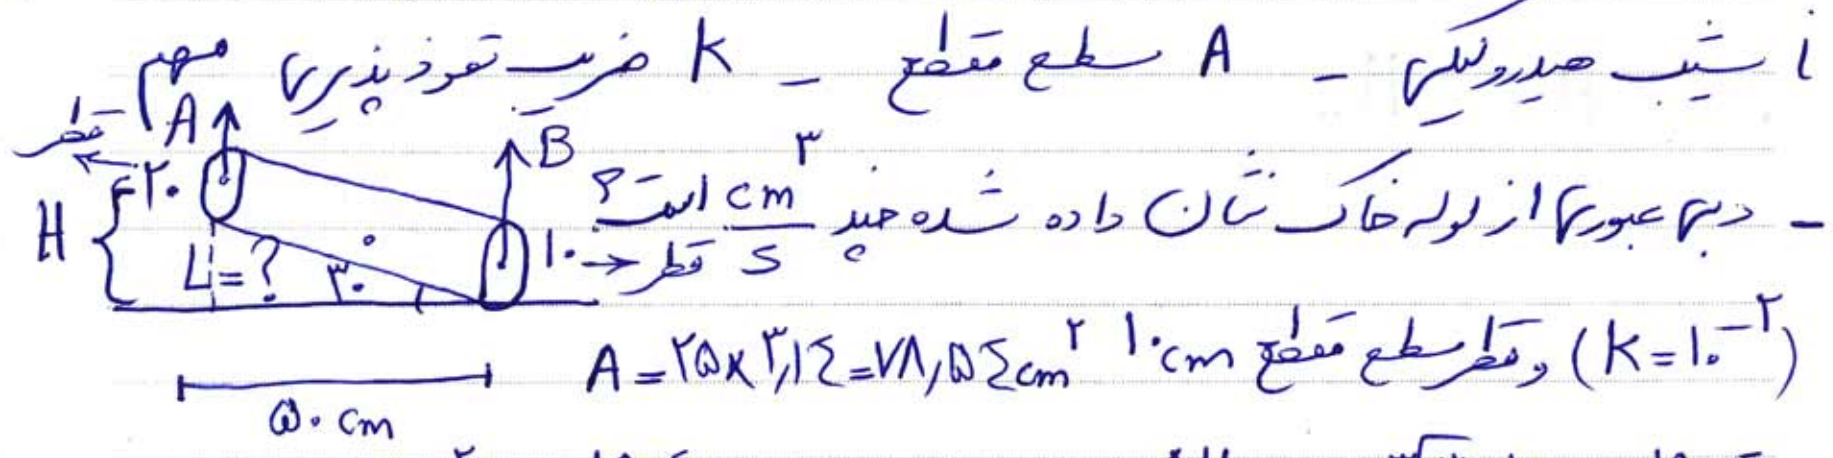 i شیب هیدرولیکی - A سطح مقطع - K ضریب نفوذپذیری مهم
قطر A B
H ۲۰ L=? ۳۰° ۱۰ → قطر
- دبی عبوری از لوله خاک نشان داده شده چند cm³/s است؟
(K=۱۰⁻²) و قطر سطح مقطع ۱۰cm A=۲۵×۳,۱۴=۷۸,۵۴cm²
۵۰ cm